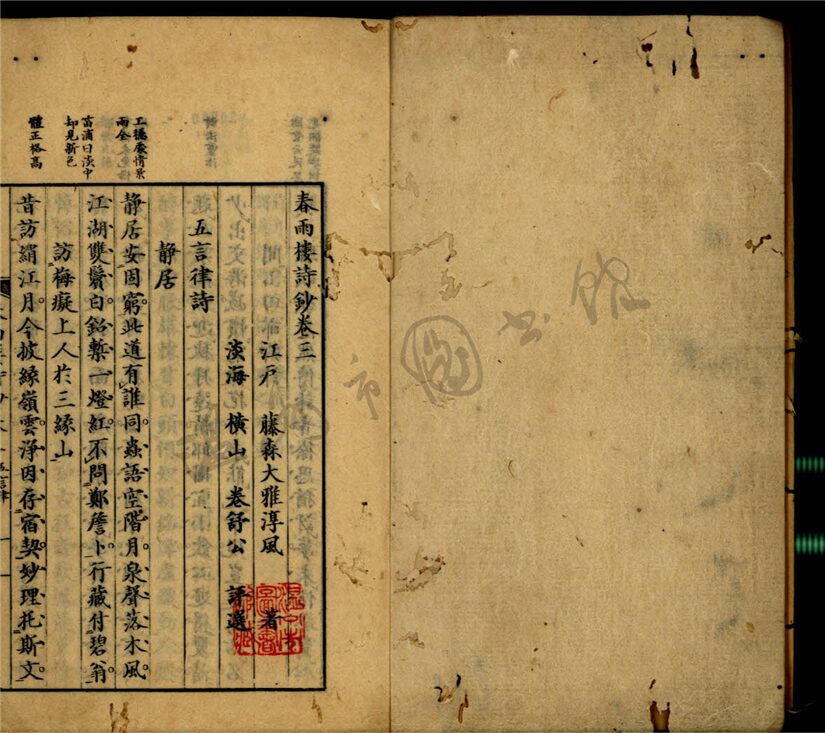 春雨樓詩鈔卷三
江戶 藤森大雅淳風 著
淡海 横山 卷舒公 評選
五言律詩
静居
静居安固窮此道有誰同蟲語空階月泉聲落木風
江湖雙鬢白鉛槧一燈紅不問鄭詹卜行藏付碧翁
訪梅癡上人於三緣山
昔訪絹江月今披緣嶺雲淨因存宿契妙理托斯文
工穩情景
雨全
面滴曰淡中
却見新色
體正格高
市圖書館